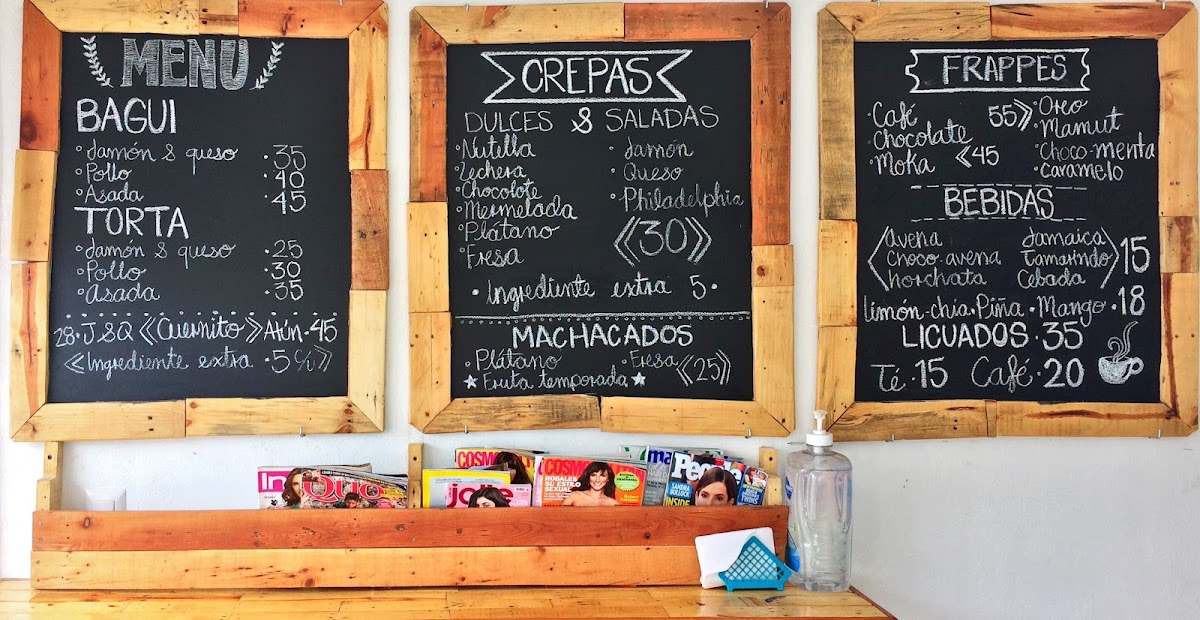 MENU
BAGUI
◦Jamón & queso ·35
◦Pollo ·40
◦Asada ·45
TORTA
◦Jamón & queso ·25
◦Pollo ·30
◦Asada ·35
28·JSQ《Cuernito》Atún·45
《Ingrediente extra ·5 》
CREPAS
DULCES & SALADAS
◦Nutella
◦Lechera
◦Chocolote
◦Mermelada
◦Plátano
◦Fresa
◦Jamón
◦Queso
◦Philadelphia
《30》
·Ingrediente extra 5·
MACHACADOS
◦Plátano ◦Fresa《25》
★Fruta temporada★
FRAPPES
◦Café
◦Chocolate
◦Moka 《45
55》◦Oreo
◦Mamut
◦Choco-menta
◦Caramelo
BEBIDAS
avena Jamaica
choco-avena Tamarindo 15
horchata Cebada
limón-chia·Piña·Mango·18
LICUADOS·35
Té·15 Café·20
In
QUO
COSMO
jolie
COSMO
ROBALES
SU ESTILO
SEXUAL
People
SANDRA
BULLOCK
INSIDE